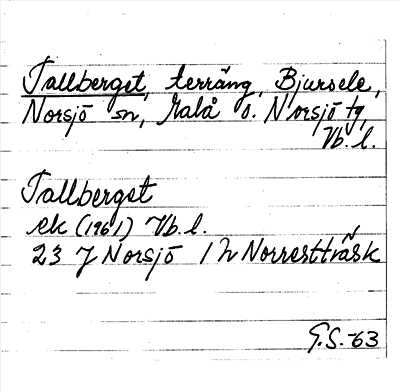 Tallberget, terräng, Bjursele,
Norsjö sn, Malå o. Norsjö tg,
Vb. l.
Tallberget
ek (1961) Vb. l.
23 J Norsjö 1 h Norrestträsk
G.S.-63